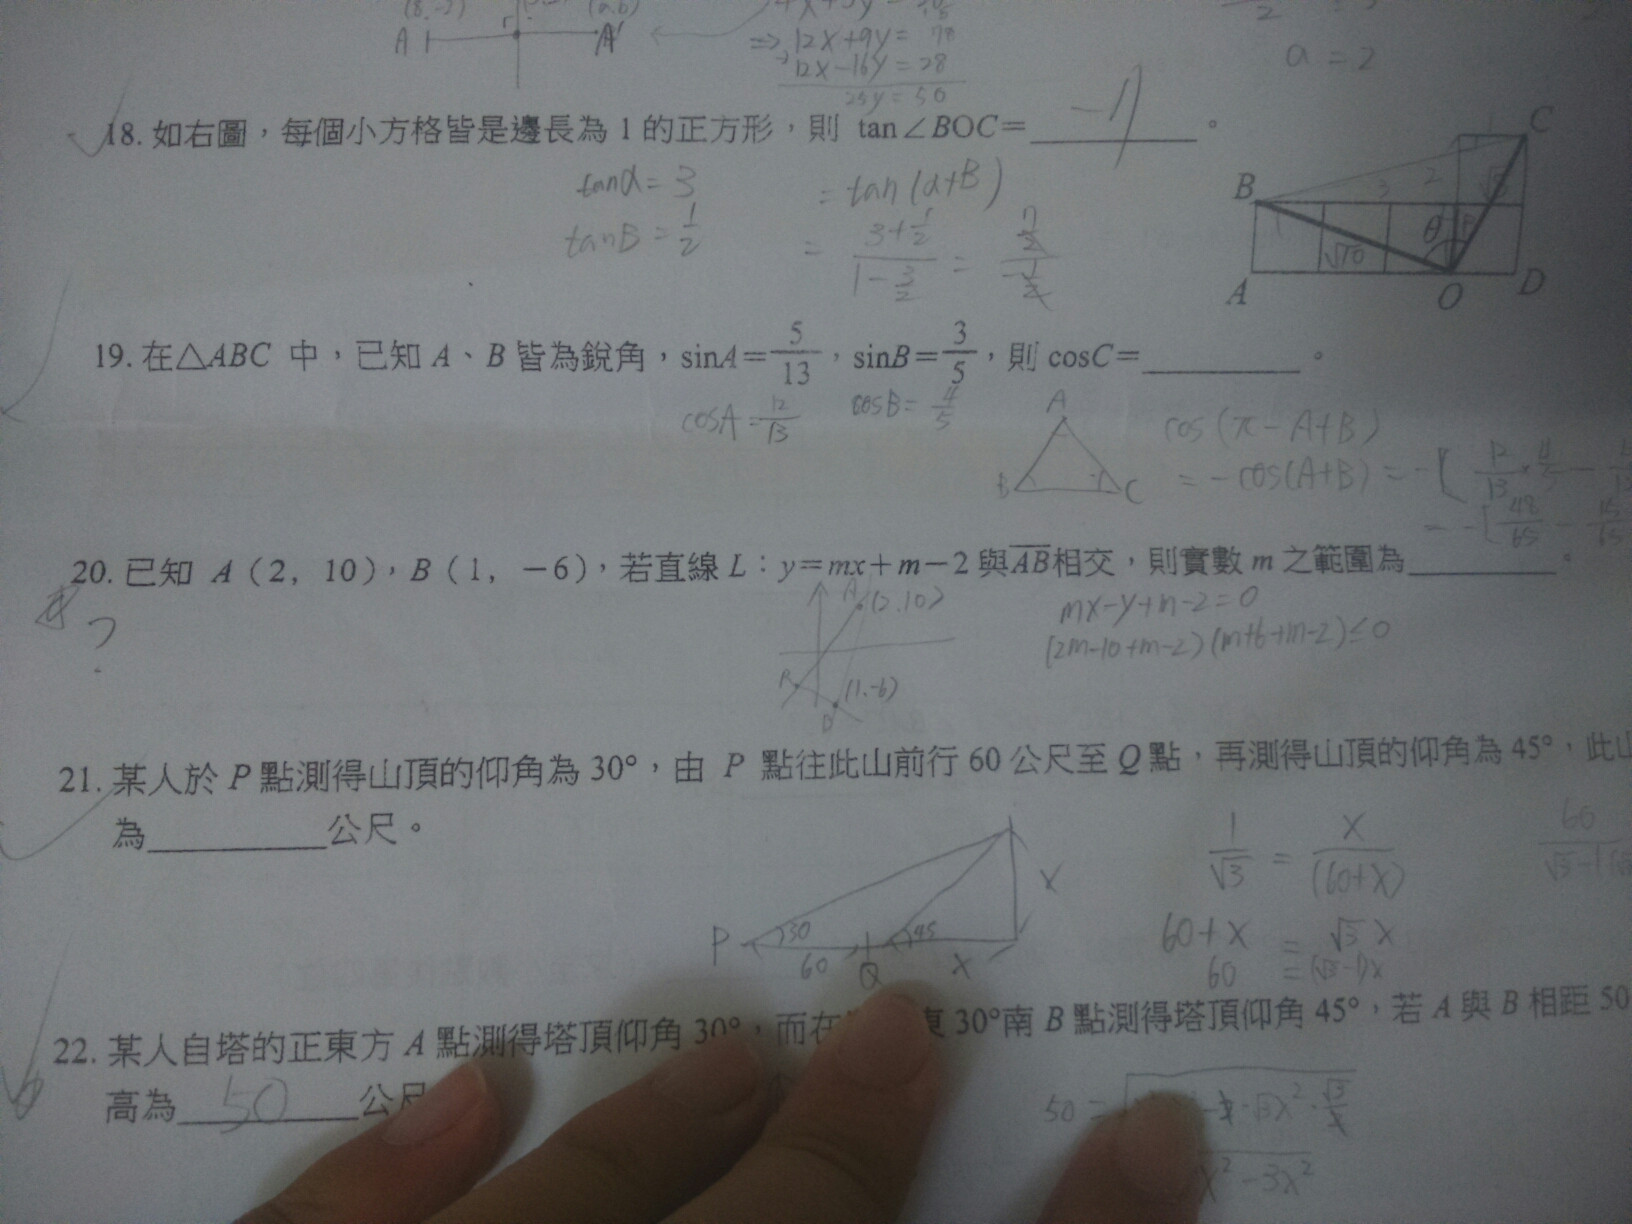 A
A'
⇒ 12x+9y= 78
12x-16y=28
25y=50
a=2
18. 如右圖,每個小方格皆是邊長為 1 的正方形,則 tan∠BOC= -7 。
tanα=3
=tan(α+β)
tanβ=1/2
= (3+1/2)/(1-3/2) = (7/2)/(-1/2)
B C A O D
1 3 2 √10 θ β
19. 在△ABC 中,已知 A、B 皆為銳角,sinA=5/13,sinB=3/5,則 cosC= 。
cosA=12/13 cosB=4/5
A B C
cos(π-A+B)
=-cos(A+B) = -[12/13×4/5-
= -[48/65 - 15/65
20. 已知 A(2, 10),B(1, -6),若直線 L:y=mx+m-2與AB相交,則實數 m 之範圍為 。
?
A (2,10)
(1,-6)
B
mx-y+m-2=0
(2m-10+m-2)(m+6+m-2)≤0
21. 某人於 P 點測得山頂的仰角為 30°,由 P 點往此山前行 60 公尺至 Q 點,再測得山頂的仰角為 45°,此山
為 公尺。
P 30 60 Q 45 x x
1/√3 = x/(60+x)
60+x = √3 x
60 =(√3-1)x
60/√3-1
22. 某人自塔的正東方 A 點測得塔頂仰角 30°,而在 東 30°南 B 點測得塔頂仰角 45°,若 A 與 B 相距 50
高為 50 公尺
50 =
x²-3x²